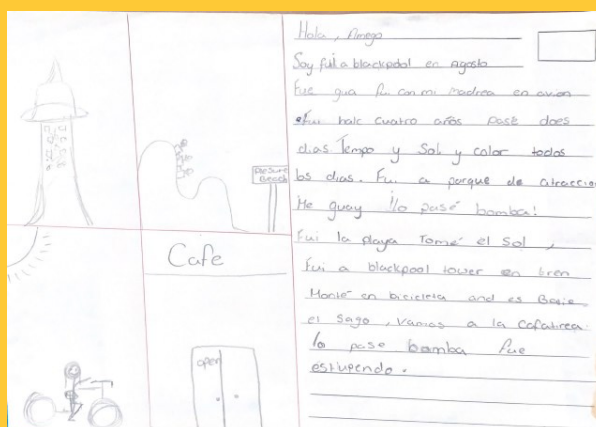 Pleasure
Beach
Cafe
open
Hola, Amego
Soy fui a blackpool en Agosto
Fue gua fui con mi madrea en avion
Fui halc cuatro años pasé does
dias Tempo y Sol y calor todos
los dias. Fui a parque de atraccion
Me guay ¡lo pasé bomba!
Fui la playa Tomé el Sol,
Fui a blackpool tower en tren
Monté en bicicleta and es Basie
el Sago, Vamos a la Cafatirea.
lo pase bomba fue
estupendo.